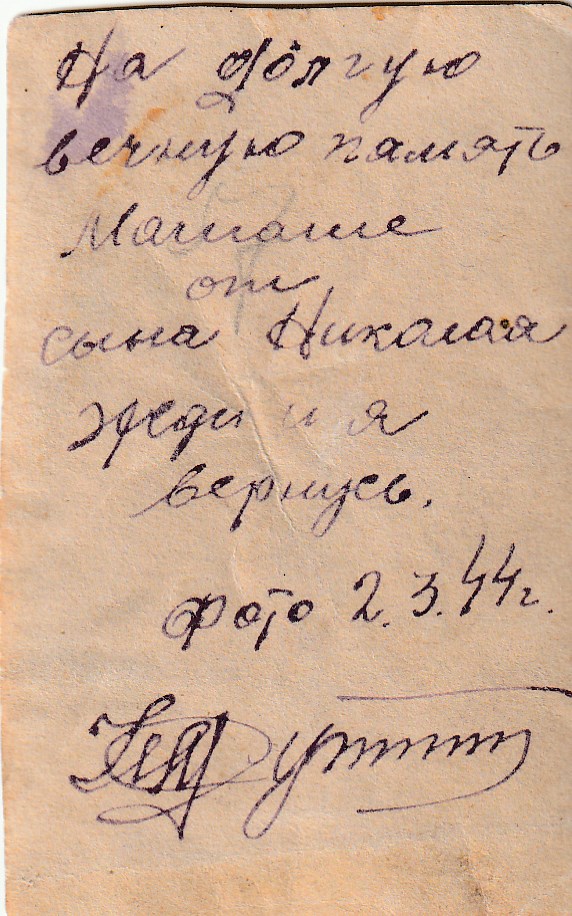 На долгую
вечную память
Мамаше
от
сына Николая
жди и я
вернусь.
фото 2.3.44г.